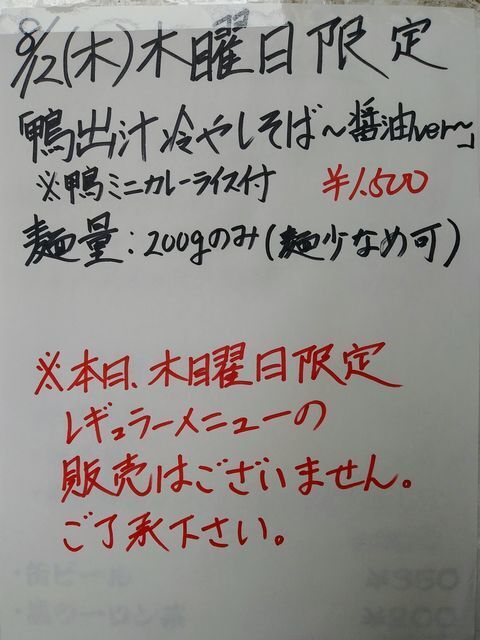 8/2(木)木曜日限定
「鴨出汁冷やしそば～醤油ver～」
※鴨ミニカレーライス付 ¥1.500
麺量：200gのみ(麺少なめ可)
※本日、木曜日限定
レギュラーメニューの
販売はございません。
ご了承下さい。
・缶ビール ¥350